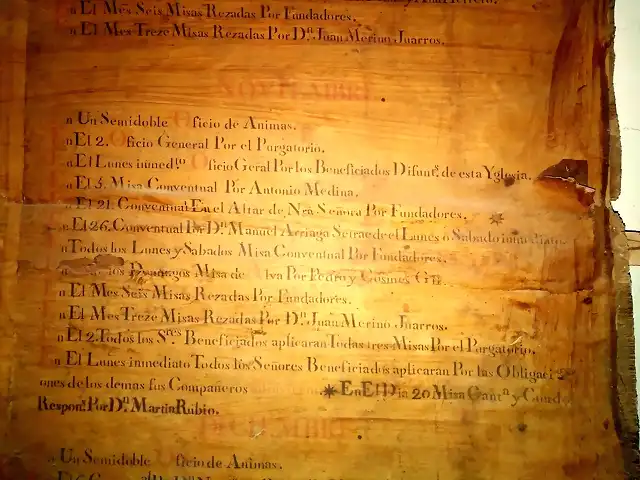 y Ana Herrero.
n El Mes Seis Misas Rezadas Por Fundadores.
n El Mes Treze Misas Rezadas Por Dn. Juan Merino Juarros.
NOVIEMBRE
n Un Semidoble Oficio de Animas.
n El 2. Oficio General Por el Purgatorio.
n El Lunes inmedto Oficio Geral Por los Beneficiados Difunts. de esta Yglesia.
n El 5. Misa Conventual Por Antonio Medina.
n El 21. Conventual En el Altar de Nra Señora Por Fundadores.
n El 26. Conventual Por Dn. Manuel Arriaga Setrae de el Lunes ò Sabado
n Todos los Lunes y Sabados Misa Conventual Por Fundadores.
n los Domingos Misa de Alva Por Pedro y Cosmes
n El Mes Seis Misas Rezadas Por Fundadores.
n El Mes Treze Misas Rezadas Por Dn. Juan Merino Juarros.
n El 2. Todos los Sres Beneficiados aplicaran Todas tres Misas Por el Purgatorio.
n El Lunes inmediato Todos los Señores Beneficiados aplicaran Por las Obligaci
ones de los demas sus Compañeros * En El Dia 20 Misa Cantn y
Respons. Por Dn. Martin Rubio.
DECIEMBRE
n Un Semidoble Oficio de Animas.